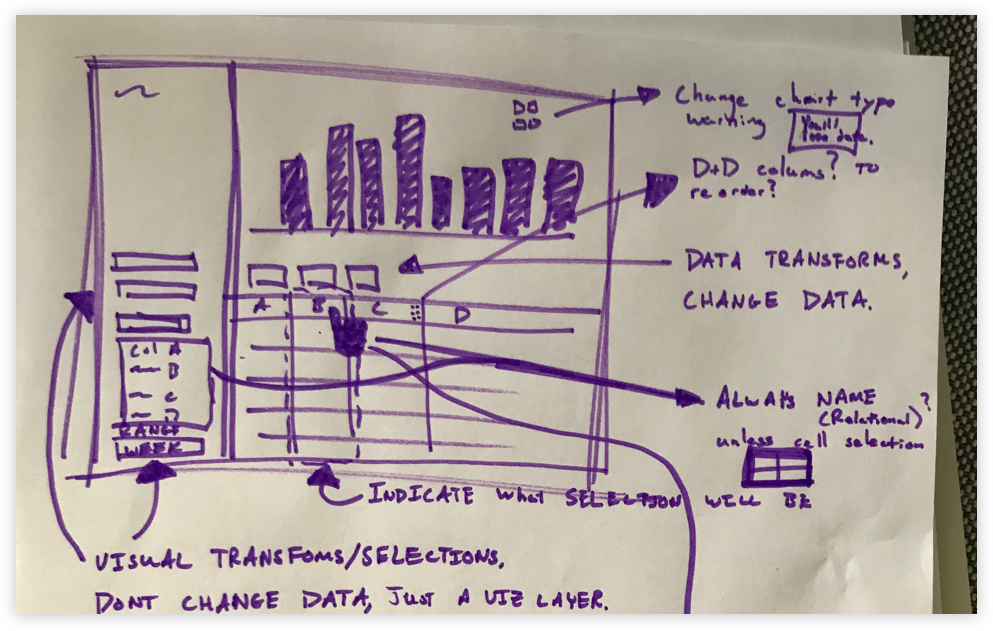 Change chart type
warning
You'll
lose data.
D+D colums? TO
reorder?
DATA TRANSFORMS,
CHANGE DATA.
A B C D
COL A
B
C
D
RANGE
WEEK
ALWAYS NAME ?
(Relational)
unless cell selection
INDICATE what SELECTION WILL BE
VISUAL TRANSFOMS/SELECTIONS,
DONT CHANGE DATA, JUST A VIZ LAYER.